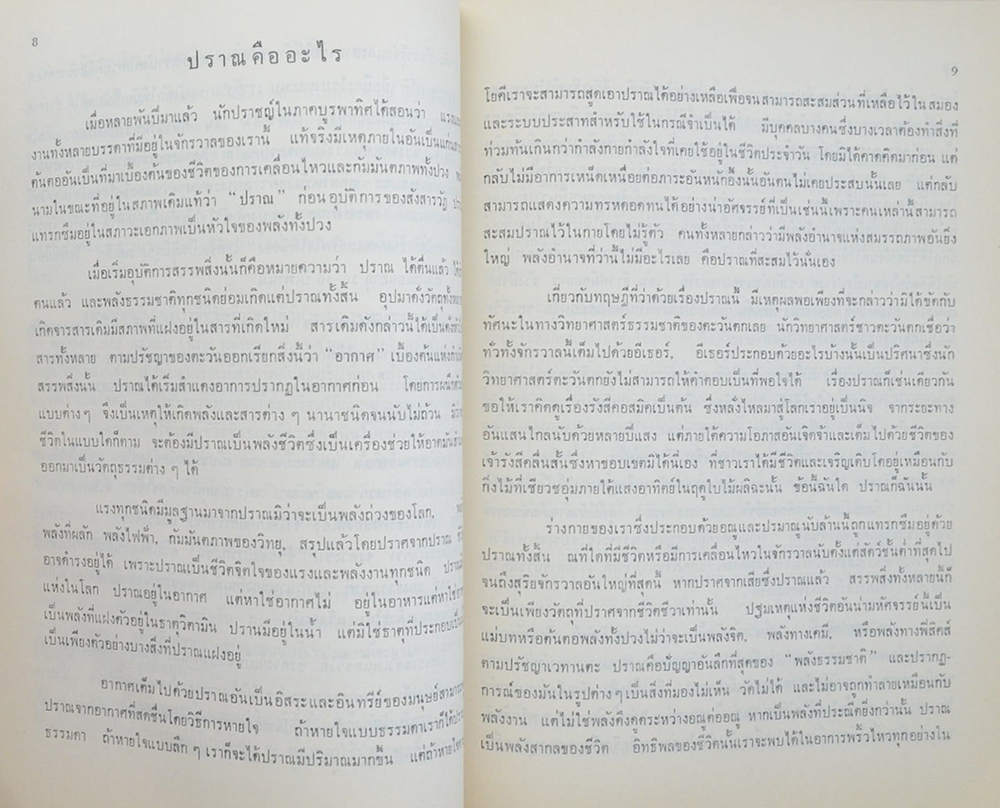 8
ปราณคืออะไร
เมื่อหลายพันปีมาแล้ว นักปราชญ์ในภาคบูรพาทิศได้สอนว่า
งานทั้งหลายบรรดาที่มีอยู่ในจักรวาลของเรานี้ แท้จริงมีเหตุภายในอันเป็น
ต้นตออันเป็นที่มาเบื้องต้นของชีวิตของการเคลื่อนไหวและกัมมันตภาพทั้งปวง
นามในขณะที่อยู่ในสภาพเดิมแท้ว่า “ปราณ” ก่อนอุบัติการของสังสารวัฏ
แทรกซึมอยู่ในสภาวะเอกภาพเป็นหัวใจของพลังทั้งปวง
เมื่อเริ่มอุบัติการสรรพสิ่งนั้นก็คือหมายความว่า ปราณ ได้ตื่นแล้ว
ตนแล้ว และพลังธรรมชาติทุกชนิดย่อมเกิดแต่ปราณทั้งสิ้น อุปมาดั่งวัตถุ
เกิดจารสารเดิมมีสภาพที่แฝงอยู่ในสารที่เกิดใหม่ สารเดิมดังกล่าวนี้ได้เป็น
สารทั้งหลาย ตามปรัชญาของตะวันออกเรียกสิ่งนี้ว่า “อากาศ” เบื้องต้นแห่ง
สรรพสิ่งนั้น ปราณได้เริ่มสำแดงอาการปรากฏในอากาศก่อน โดยการ
แบบต่างๆ จึงเป็นเหตุให้เกิดพลังและสารต่าง ๆ นานาชนิดจนนับไม่ถ้วน
ชีวิตในแบบใดก็ตาม จะต้องมีปราณเป็นพลังชีวิตซึ่งเป็นเครื่องช่วยให้
ออกมาเป็นวัตถุธรรมต่าง ๆ ได้
แรงทุกชนิดมีมูลฐานมาจากปราณมิว่าจะเป็นพลังถ่วงของโลก,
พลังที่ผลัก พลังไฟฟ้า, กัมมันตภาพของวิทยุ, สรุปแล้วโดยปราศจากปราณ
อาจดำรงอยู่ได้ เพราะปราณเป็นชีวิตจิตใจของแรงและพลังงานทุกชนิด
แห่งในโลก ปราณอยู่ในอากาศ แต่หาใช่อากาศไม่ อยู่ในอาหารแต่หาใช่
เป็นพลังที่แฝงตัวอยู่ในธาตุวิตามิน ปรานมีอยู่ในน้ำ แต่มิใช่ธาตุที่ประกอบ
เป็นเพียงตัวอย่างบางสิ่งที่ปราณแฝงอยู่
อากาศเต็มไปด้วยปราณอันเป็นอิสระและอินทรีย์ของมนุษย์
ปราณจากอากาศที่สดชื่นโดยวิธีการหายใจ ถ้าหายใจแบบธรรมดาเราก็ได้
ธรรมดา ถ้าหายใจแบบลึกๆ เราก็จะได้ปราณมีปริมาณมากขึ้น แต่ถ้าหายใจ
9
โยคีเราจะสามารถสูดเอาปราณได้อย่างเหลือเพื่อจนสามารถสะสมส่วนที่เหลือไว้ในสมอง
และระบบประสาทสำหรับใช้ในกรณีจำเป็นได้ มีบุคคลบางคนซึ่งบางเวลาต้องทำสิ่งที่
ท่วมท้นเกินกว่ากำลังกายกำลังใจที่เคยใช้อยู่ในชีวิตประจำวัน โดยมิได้คาดคิดมาก่อน แต่
กลับไม่มีอาการเหน็ดเหนื่อยต่อภาระอันหนักอึ้งนั้นอันตนไม่เคยประสบนั้นเลย แต่กลับ
สามารถแสดงความทรหดอดทนได้อย่างน่าอัศจรรย์ที่เป็นเช่นนี้เพราะคนเหล่านี้สามารถ
สะสมปราณไว้ในกายโดยไม่รู้ตัว คนทั้งหลายกล่าวว่ามีพลังอำนาจแห่งสมรรถภาพอันยิ่ง
ใหญ่ พลังอำนาจที่ว่านี้ไม่มีอะไรเลย คือปราณที่สะสมไว้นั่นเอง
เกี่ยวกับทฤษฎีที่ว่าด้วยเรื่องปราณนี้ มีเหตุผลพอเพียงที่จะกล่าวว่ามิได้ขัดกับ
ทัศนะในทางวิทยาศาสตร์ธรรมชาติของตะวันตกเลย นักวิทยาศาสตร์ชาวตะวันตกเชื่อว่า
ทั่วทั้งจักรวาลนี้เต็มไปด้วยอีเธอร์, อีเธอร์ประกอบด้วยอะไรบ้างนั้นเป็นปริศนาซึ่งนัก
วิทยาศาสตร์ตะวันตกยังไม่สามารถให้คำตอบเป็นที่พอใจได้ เรื่องปราณก็เช่นเดียวกัน
ขอให้เราคิดดูเรื่องรังสีคอสมิคเป็นต้น ซึ่งหลั่งไหลมาสู่โลกเราอยู่เป็นนิจ จากระยะทาง
อันแสนไกลนับด้วยหลายปีแสง แต่ภายใต้ความโอภาสอันเจิดจ้าและเต็มไปด้วยชีวิตของ
เจ้ารังสีคลื่นสั้นซึ่งหาขอบเขตมิได้นี่เอง ที่ชาวเราได้มีชีวิตและเจริญเติบโตอยู่เหมือนกับ
กิ่งไม้ที่เขียวชอุ่มภายใต้แสงอาทิตย์ในฤดูใบไม้ผลิฉะนั้น ข้อนี้ฉันใด ปราณก็ฉันนั้น
ร่างกายของเราซึ่งประกอบด้วยอณูและปรมาณูนับล้านนี้ถูกแทรกซึมอยู่ด้วย
ปราณทั้งสิ้น ณที่ใดที่มีชีวิตหรือมีการเคลื่อนไหวในจักรวาลนับตั้งแต่สัตว์ชั้นต่ำที่สุดไป
จนถึงสุริยจักรวาลอันใหญ่ที่สุดนี้ หากปราศจากเสียซึ่งปราณแล้ว สรรพสิ่งทั้งหลายนี้ก็
จะเป็นเพียงวัตถุที่ปราศจากชีวิตชีวาเท่านั้น ปฐมเหตุแห่งชีวิตอันน่ามหัศจรรย์นี้เป็น
แม่บทหรือต้นตอพลังทั้งปวงไม่ว่าจะเป็นพลังจิต, พลังทางเคมี, หรือพลังทางฟิสิคส์
ตามปรัชญาเวทานตะ ปราณคือบัญญาอันลึกที่สุดของ “พลังธรรมชาติ” และปรากฏ-
การณ์ของมันในรูปต่างๆเป็นสิ่งที่มองไม่เห็น วัดไม่ได้ และไม่อาจถูกทำลายเหมือนกับ
พลังงาน แต่ไม่ใช่พลังดึงดูดระหว่างอณูต่ออณู หากเป็นพลังที่ประณีตยิ่งกว่านั้น ปราณ
เป็นพลังสากลของชีวิต อิทธิพลของชีวิตนั้นเราจะพบได้ในอาการพริ้วไหวทุกอย่างใน